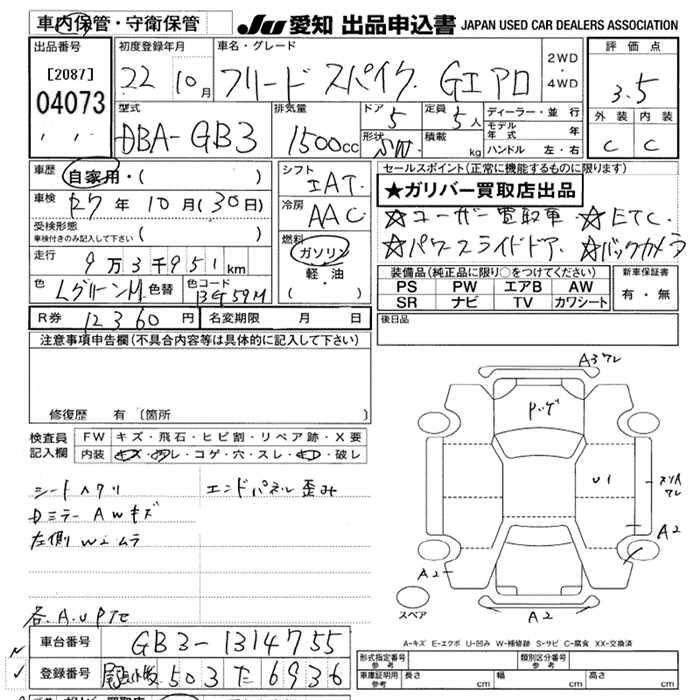 車内保管・守衛保管
JU 愛知 出品申込書 JAPAN USED CAR DEALERS ASSOCIATION
出品番号 初度登録年月 車名・グレード 評価点
[2087] 22 10月 フリード スパイク GIアロ 2WD・4WD 3.5
04073
型式 排気量 ドア 定員 ディーラー・並行 外装 内装
DBA-GB3 1500cc 5 5人 モデル年式 年 C C
形状 積載 kg ハンドル 左・右
車歴 自家用・( ) シフト IAT セールスポイント(正常に機能するものに限ります)
★ガリバー買取店出品
車検 27年10月(30日) 冷房 AAC ☆ユーザー買取車 ☆ETC
受検形態 車検付きのみ記入して下さい ( ) ☆パワースライドドア ☆バックカメラ
走行 9万3千951km 燃料 ガソリン・軽・油・( )
装備品(純正品に限り○をつけてください) 新車保証書
色 LグリーンM 色替 色コード PS PW エアB AW 有・無
SR ナビ TV カワシート
R券 12360円 名変期限 月 日 後日品
注意事項申告欄(不具合内容等は具体的に記入して下さい)
修復歴 有 (箇所 )
検査員記入欄 FW キズ・飛石・ヒビ割・リペア跡・X要
内装 キズ・汚レ・コゲ・穴・スレ・切レ・破レ
シートヘタリ エンドパネル歪み
DミラーAWキズ
左側Wエムラ
各A.U
A3ワレ
U1
A2
A2
A2
スペア
A-キズ E-エクボ U-凹み W-補修跡 S-サビ C-腐食 XX-交換済
車台番号 GB3-1314755
登録番号 503 た 6936
形式指定番号 参考 類別区分番号 参考
車庫証明用 参考 長さ cm 幅 cm 高さ cm